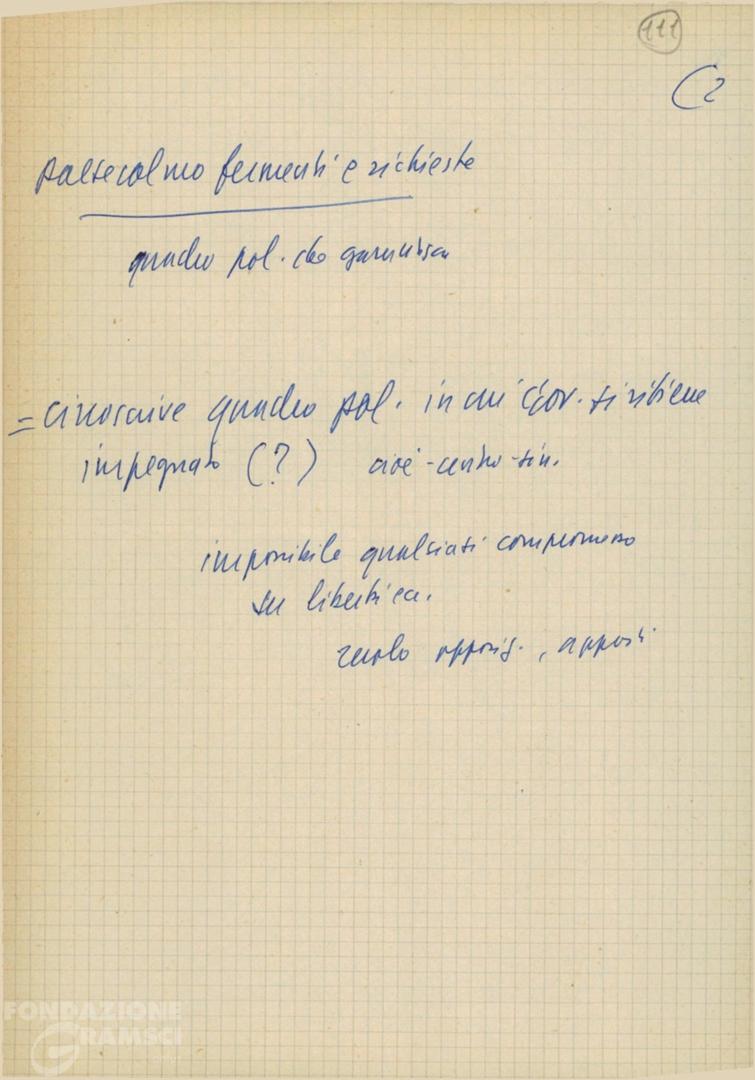 111
C2
fermenti e richieste
quadro pol. che garantisca
= circoscrive quadro pol. in cui Gov. si ritiene
impegnato (?) cioè - centro-sin.
impossibile qualsiasi compromesso
su libertà ecc.
ruolo opposiz., apporti
FONDAZIONE
GRAMSCI